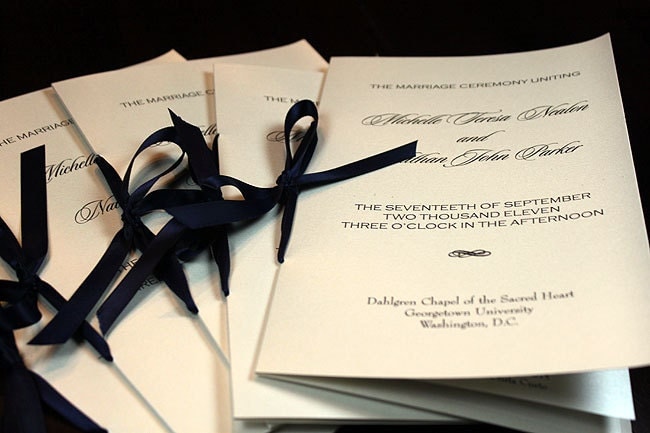 THE MARRIAGE
Michelle
THE MARRIAGE
Nat
THE MARRIAGE
THE MARRIAGE CEREMONY UNITING
Michelle Teresa Nealon
and
John Parker
THE SEVENTEETH OF SEPTEMBER
TWO THOUSAND ELEVEN
THREE O'CLOCK IN THE AFTERNOON
Dahlgren Chapel of the Sacred Heart
Georgetown University
Washington, D.C.